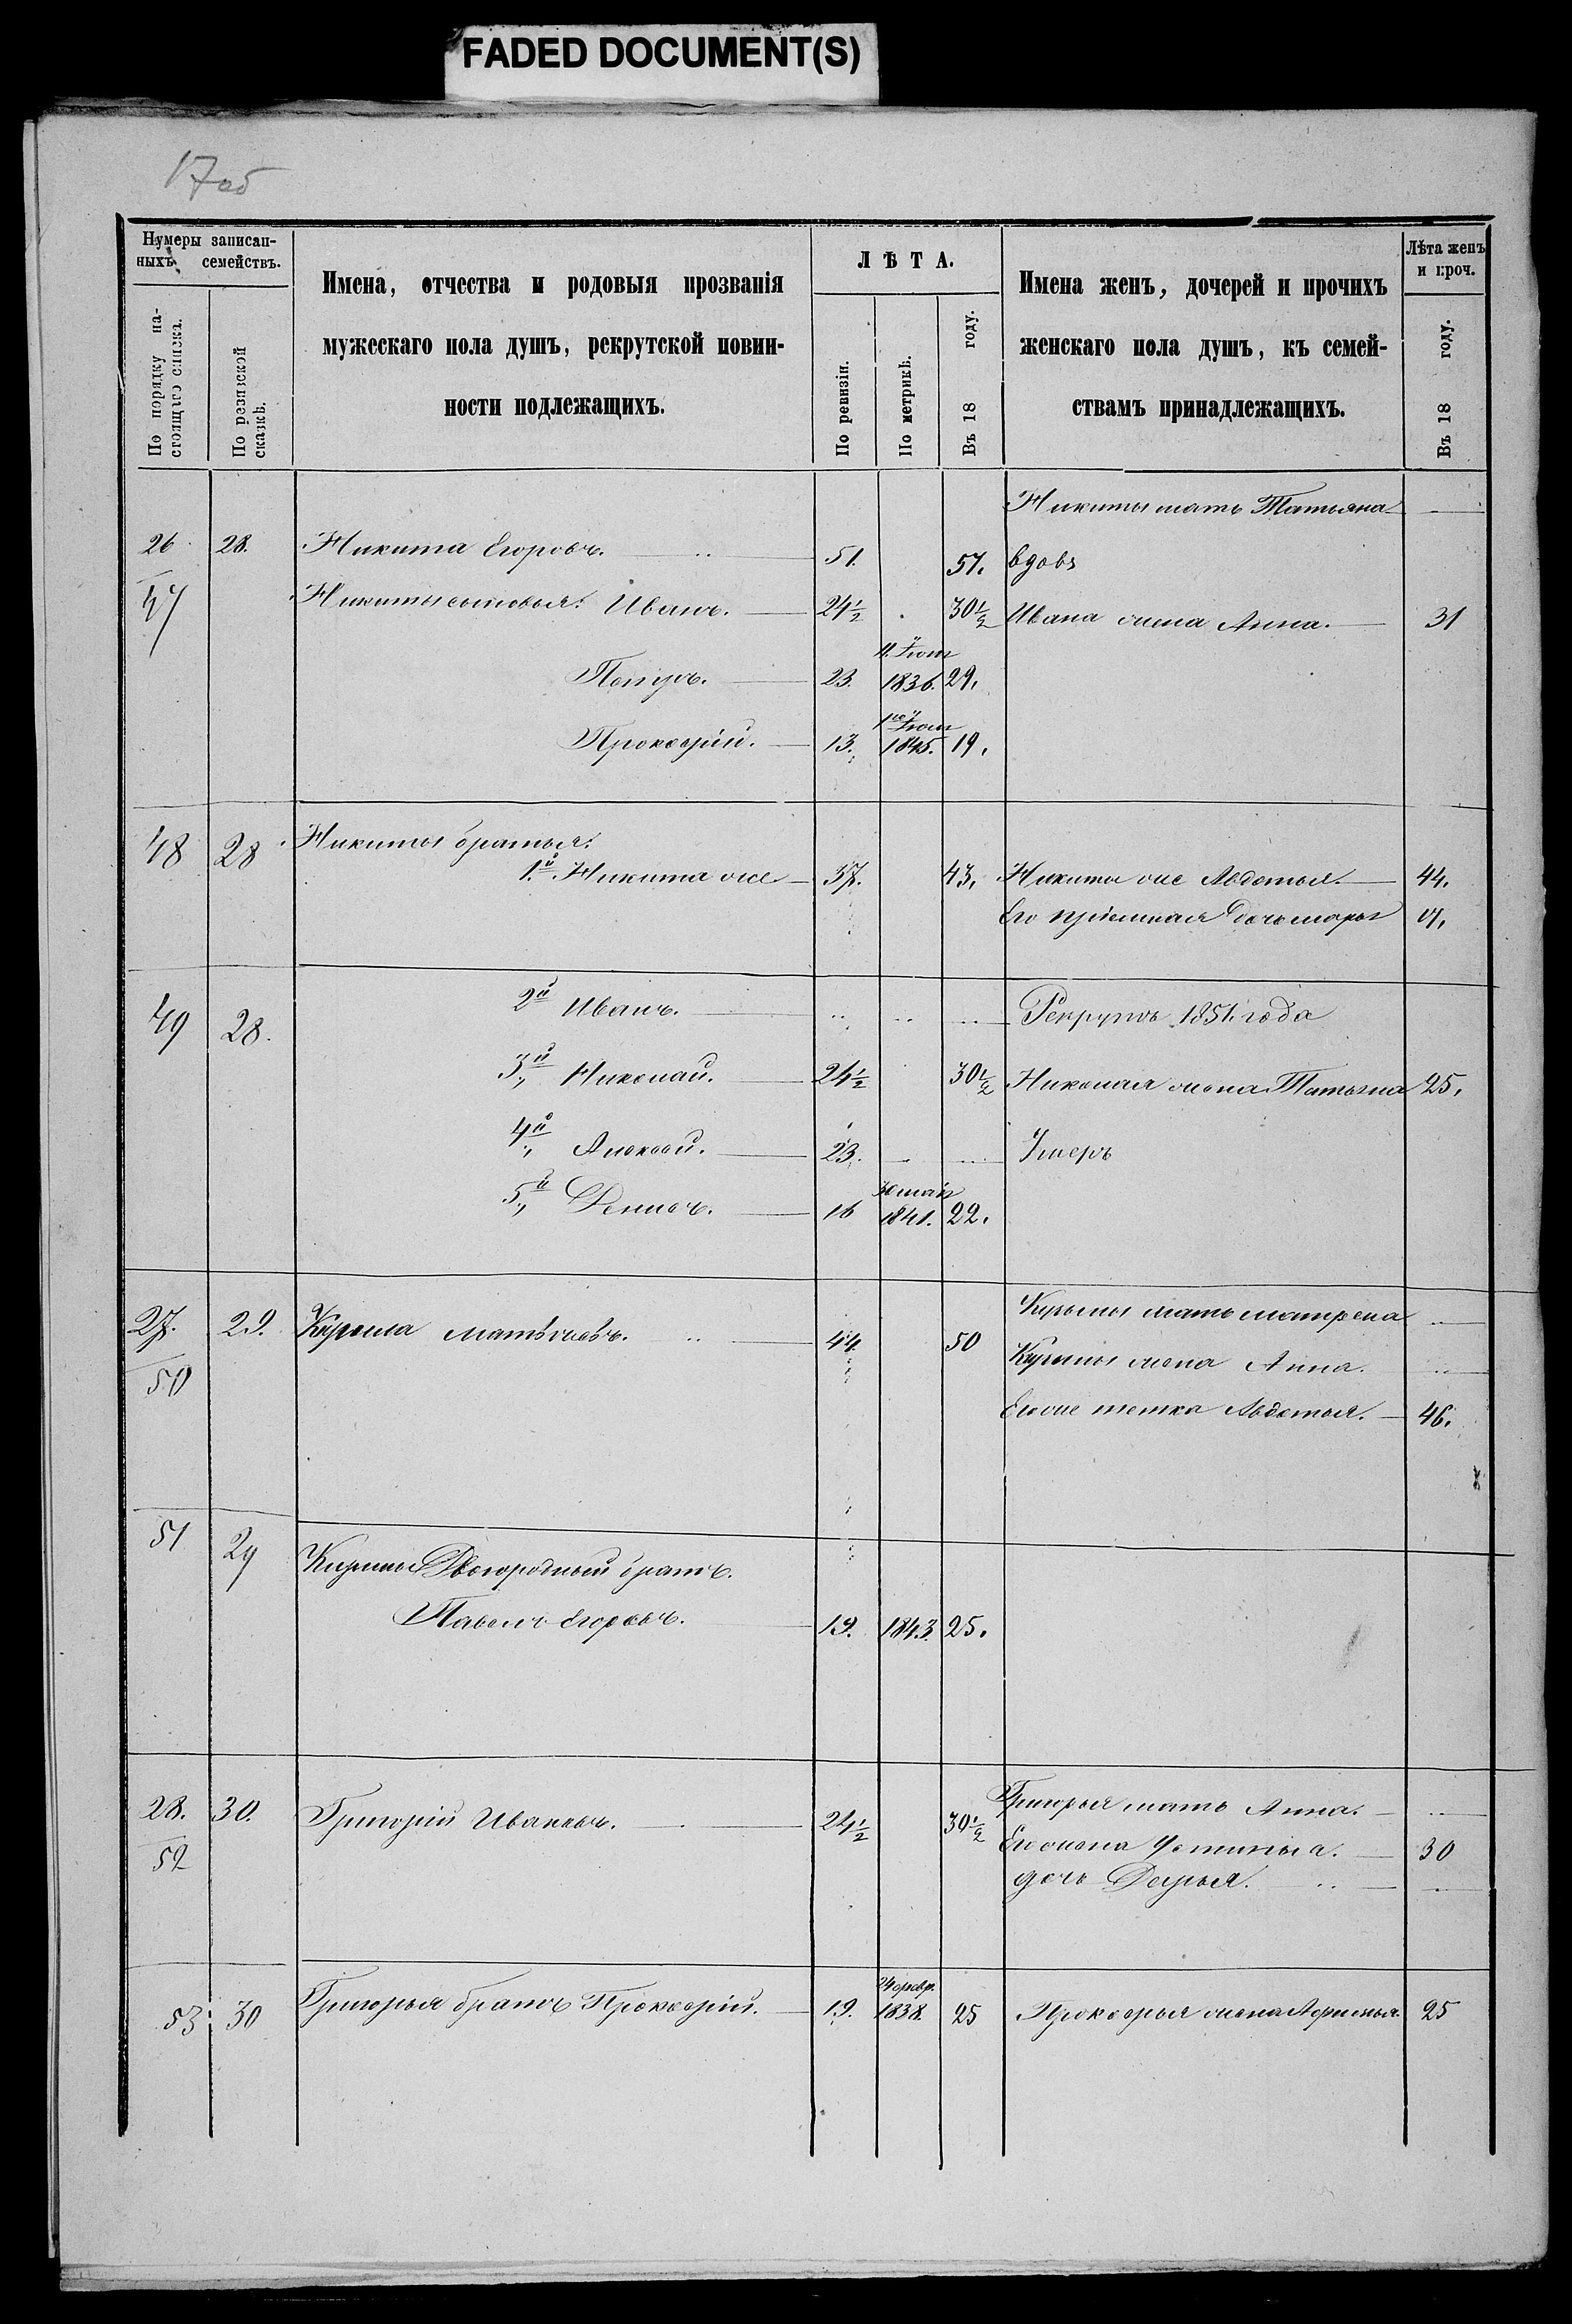 FADED DOCUMENT(S)
17об
Нумеры записан-
ныхъ семействъ.
По порядку на-
стоящаго списка.
По ревизской
сказкѣ.
Имена, отчества и родовыя прозванія
мужескаго пола душъ, рекрутской повин-
ности подлежащихъ.
ЛѢТА.
По ревизіи.
По метрикѣ.
Въ 18 году.
Имена женъ, дочерей и прочихъ
женскаго пола душъ, къ семей-
ствамъ принадлежащихъ.
Лѣта женъ
и проч.
Въ 18 году.
Никиты мать Татьяна
26 28. Никита Егоровъ. 51. 57. вдова
47 Никиты сыновья: Иванъ. 24½ 30½ Ивана жена Анна. 31
Петръ. 23. 1836. 29.
Прокофій. 13. 1845. 19.
48 28 Никиты братья:
1й Никита же 37. 43. Никиты же Авдотья. 44.
Его пріемная дочь Марья
49 28. 2й Иванъ. Рекрутъ 1851 года
3й Николай. 24½ 30½ Николая жена Татьяна 25.
4й Алексѣй. 23. Умеръ
5й Денисъ. 16 30 мая 1841. 22.
27. 29. Кирила Матвѣевъ. 44. 50 Кирилы мать Матрена
50 Кирилы жена Анна.
Его же тетка Авдотья. 46.
51 29 Кирилы Двоюродный братъ.
Павелъ Егоровъ. 19. 1843. 25.
28. 30. Григорій Ивановъ. 24½ 30½ Григорья мать Анна.
52 Его жена Устинья. 30
дочь Дарья.
53 30 Григорья братъ Прокофій. 19. 24 февр. 1838. 25 Прокофья жена 25